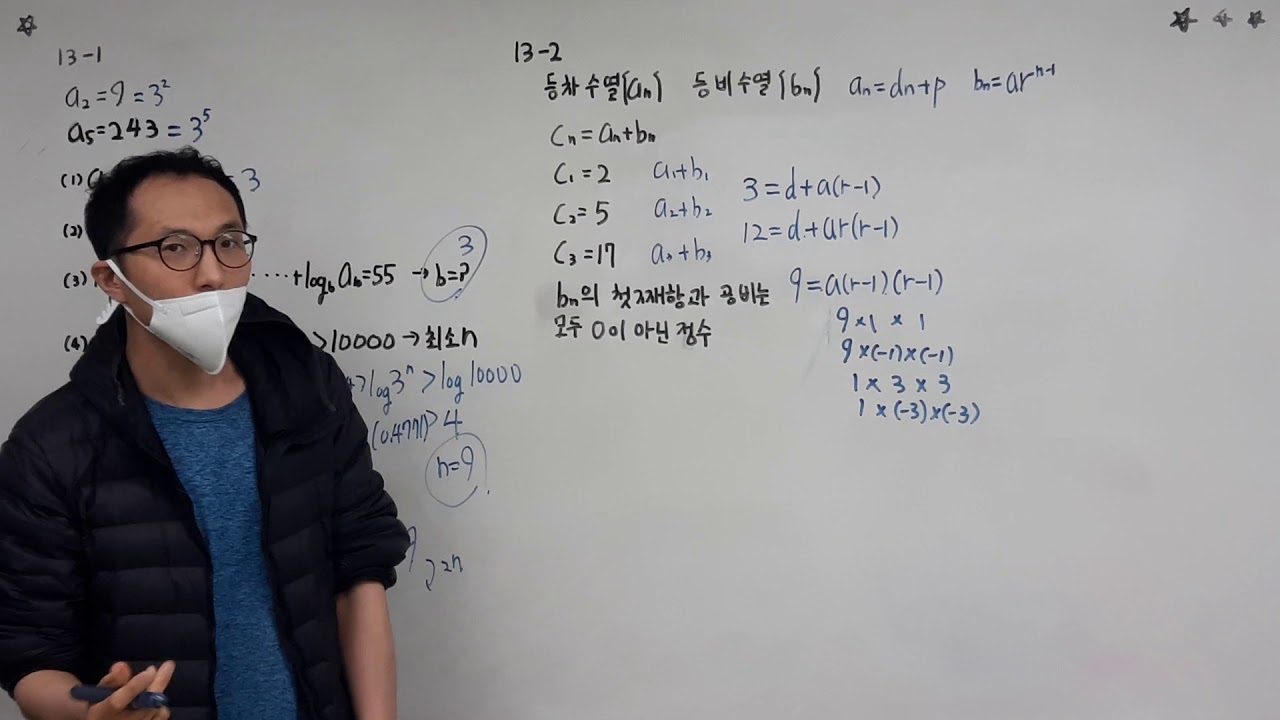 13-1
a₂=9=3²
a₅=243=3⁵
(1) a =3
(2)
(3) ·····+log_b a₁₀=55 →b=? 3
(4) >10000→최소n
log3ⁿ>log10000
(0.4771)>4
n=9
2n
13-2
등차수열{aₙ} 등비수열{bₙ} aₙ=dn+p bₙ=arⁿ⁻¹
Cₙ=aₙ+bₙ
C₁=2 a₁+b₁
C₂=5 a₂+b₂
C₃=17 a₃+b₃
3=d+a(r-1)
12=d+ar(r-1)
bₙ의 첫째항과 공비는
모두 0이 아닌 정수
9=a(r-1)(r-1)
9×1×1
9×(-1)×(-1)
1×3×3
1×(-3)×(-3)